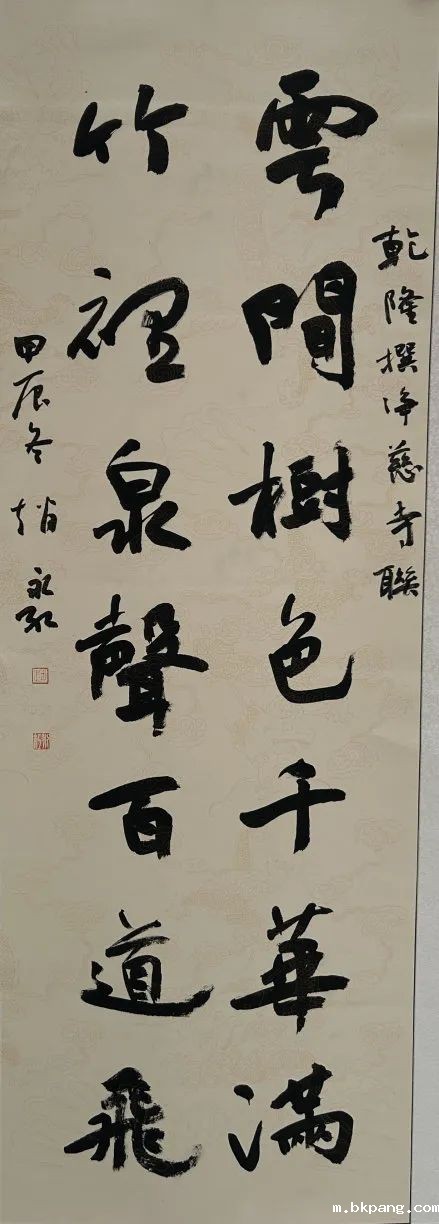 乾隆撰净慈寺聯
雲間樹色千華滿
竹裡泉聲百道飛
甲辰冬 趙永
m.bkpang.com